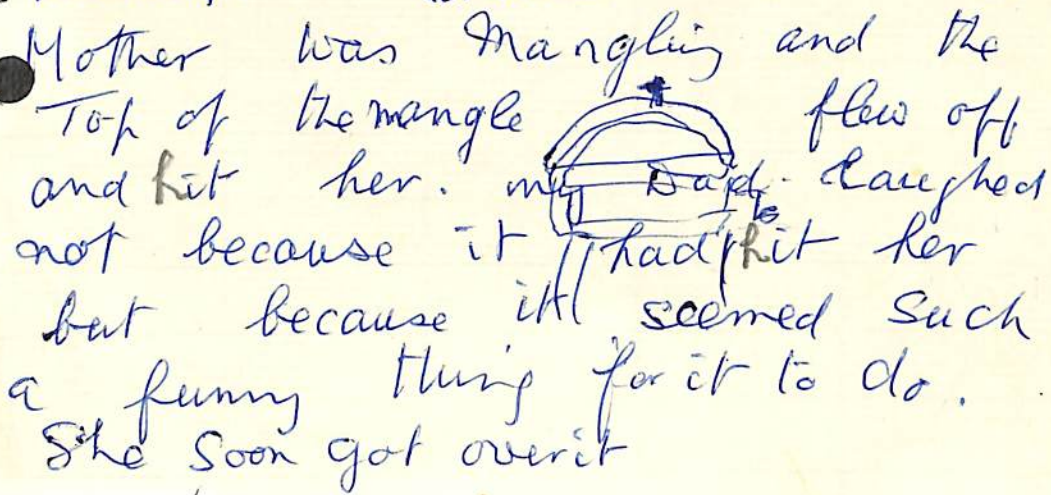 Mother was Mangling and the
Top of the mangle flew off
and hit her. my Dad laughed
not because it had hit her
but because it seemed such
a funny thing for it to do.
She soon got over it